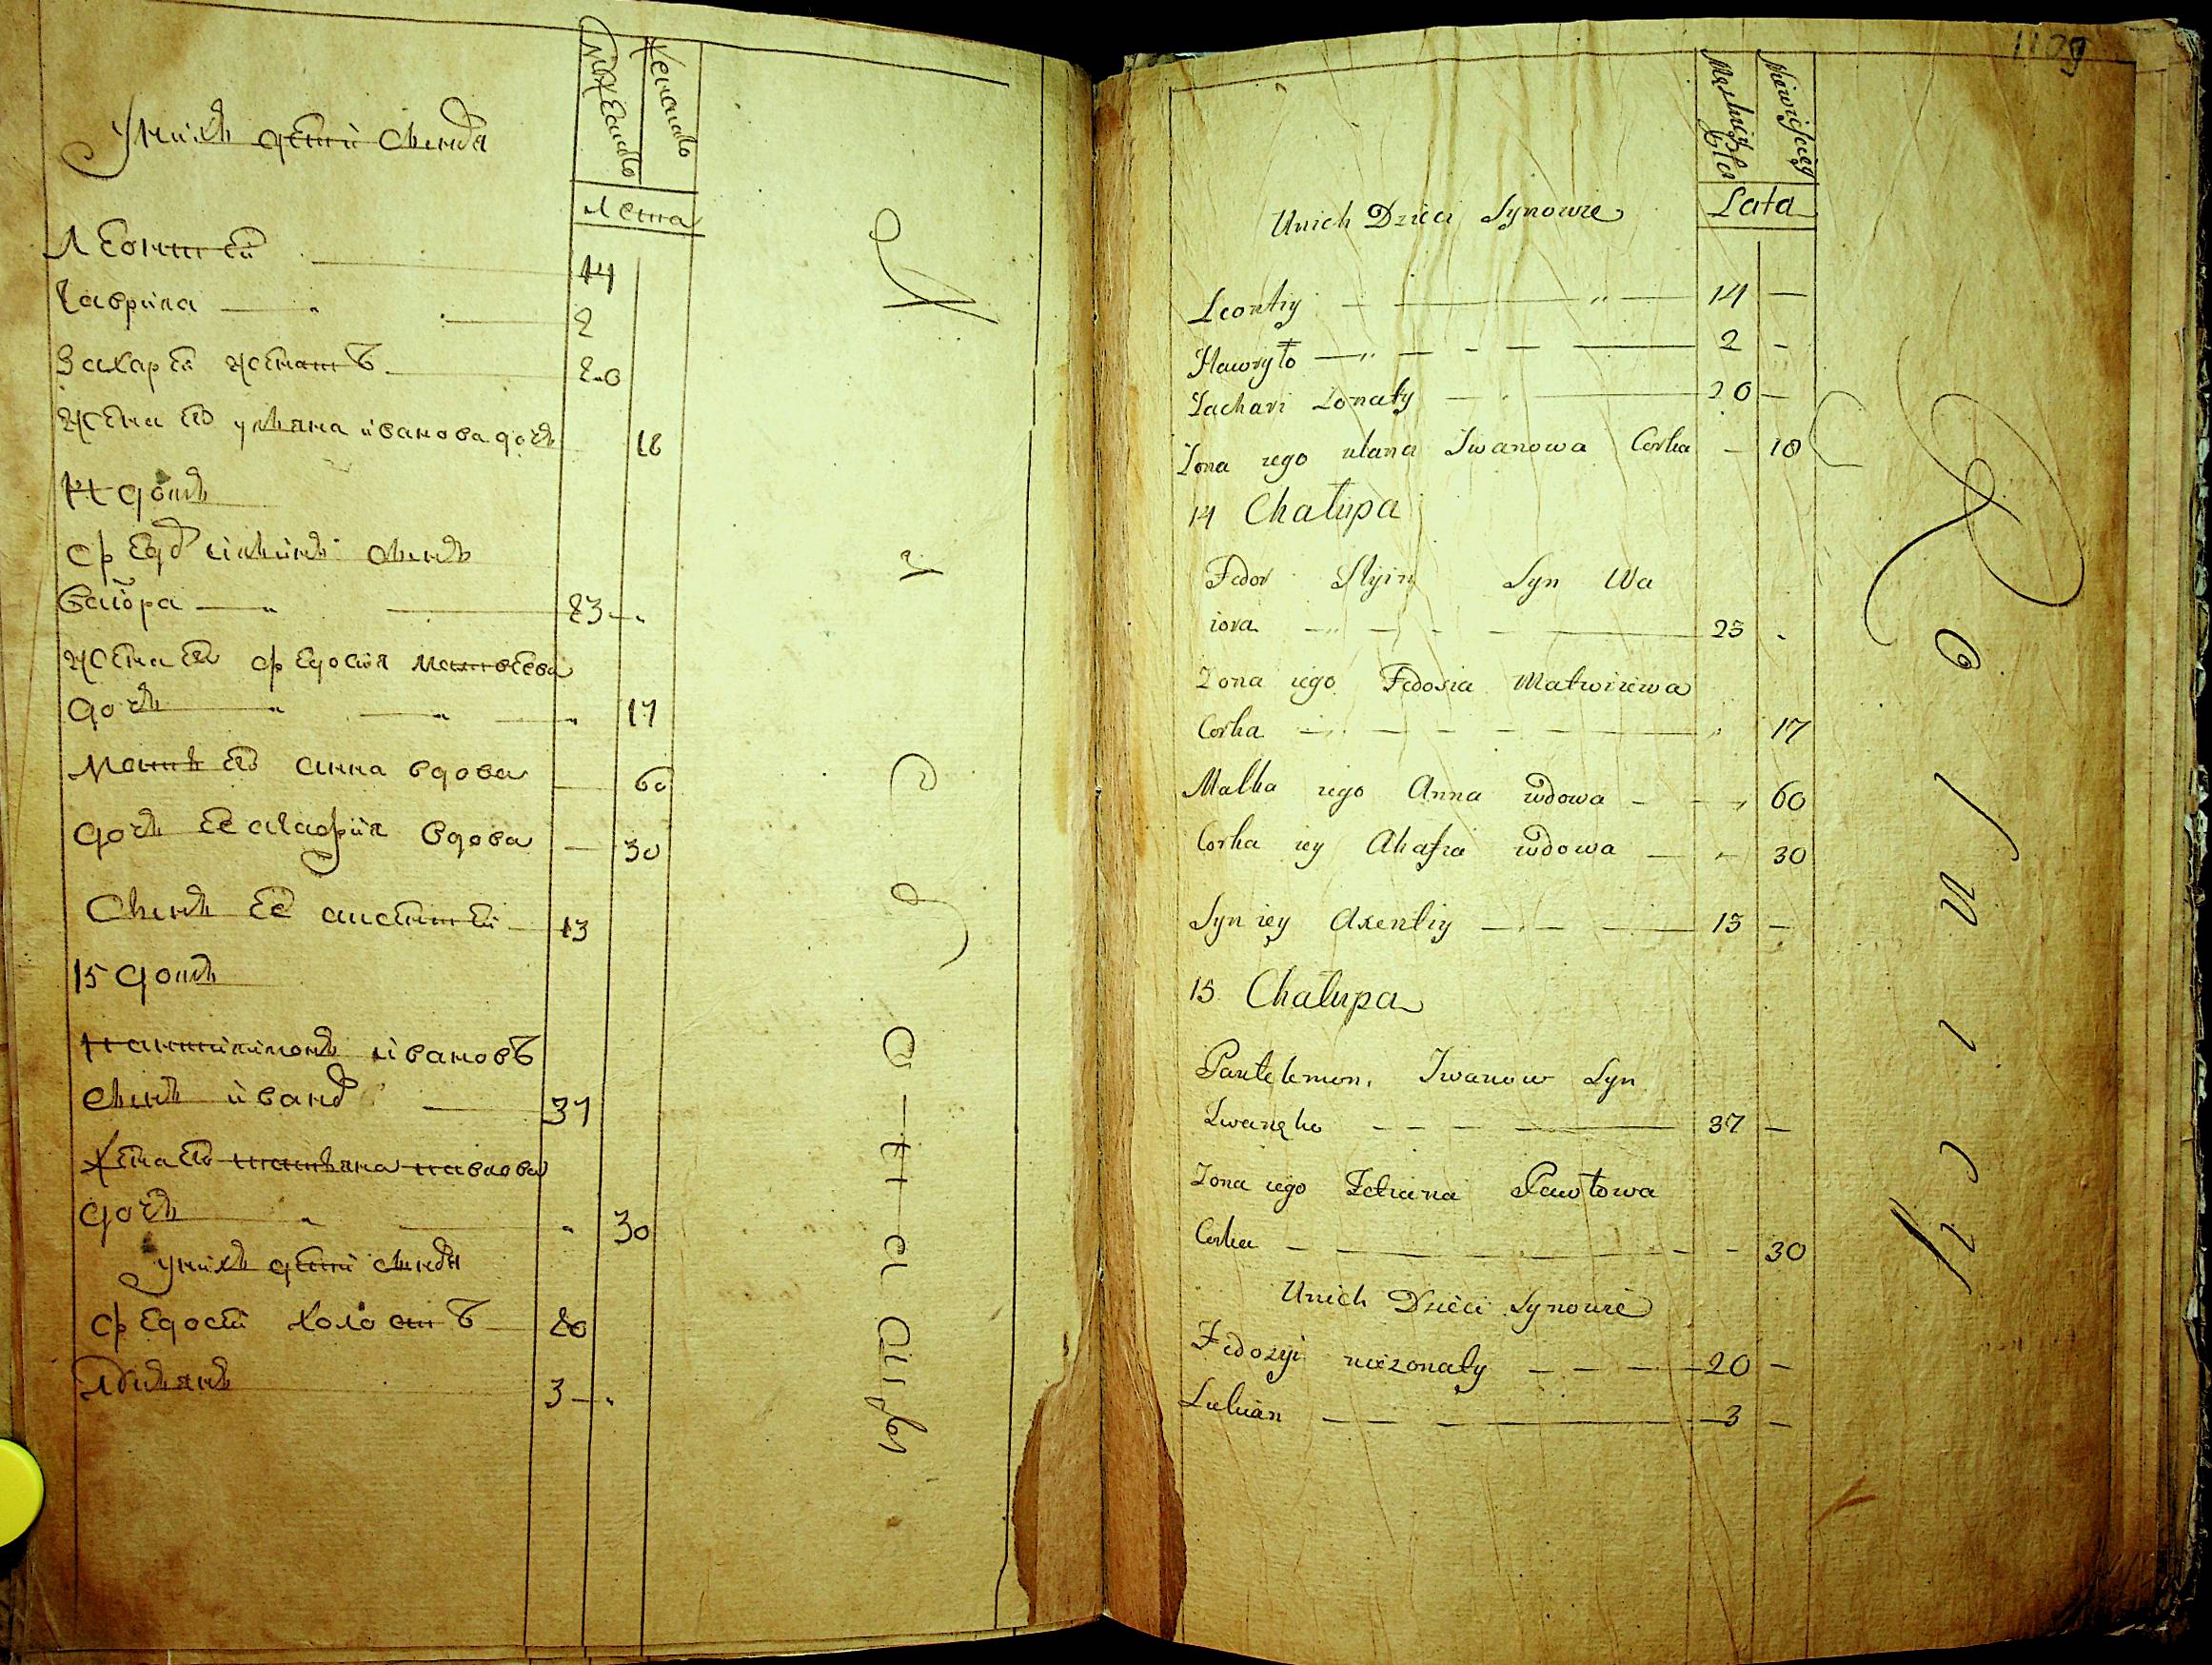 Мужеска
Женска
Лета
У них детей сынов
Леонтей 14
Гаврила 2
Захарей женатъ 20
Жена его ульяна иванова дочь 18
14 домъ
Федоръ ильинъ сынъ
Вайора 23
Жена ево федосия матвеева
дочь 17
Мать ево анна вдова 60
дочь ее агафия вдова 30
Сынъ ее аксентей 13
15 домъ
Пантилимонъ ивановъ
сынъ 37
Жена ево татьяна павлова
дочь 30
У них детей сынов
федосей холостъ 20
Лукьянъ 3
1109
Lata
Unich Dzieci Synowie
Leontiy 14 —
Hawryło 2 -
Zachari Zonaty 20 —
Zona iego ulana Iwanowa Corka — 18
14 Chałupa
Fedor Ilyin Syn Wa
iora 23
Zona iego Fedosia Matwiiewa
Corka 17
Matka iego Anna wdowa 60
Corka iey Ahafia wdowa 30
Syn iey Axentiy 13 —
15 Chałupa
Pantelemon Iwanow Syn
37 —
Zona iego Tetiana Pawłowa
Corka 30
Unich Dzieci Synowie
Fedozyi niezonaty 20 —
Lukian 3 —